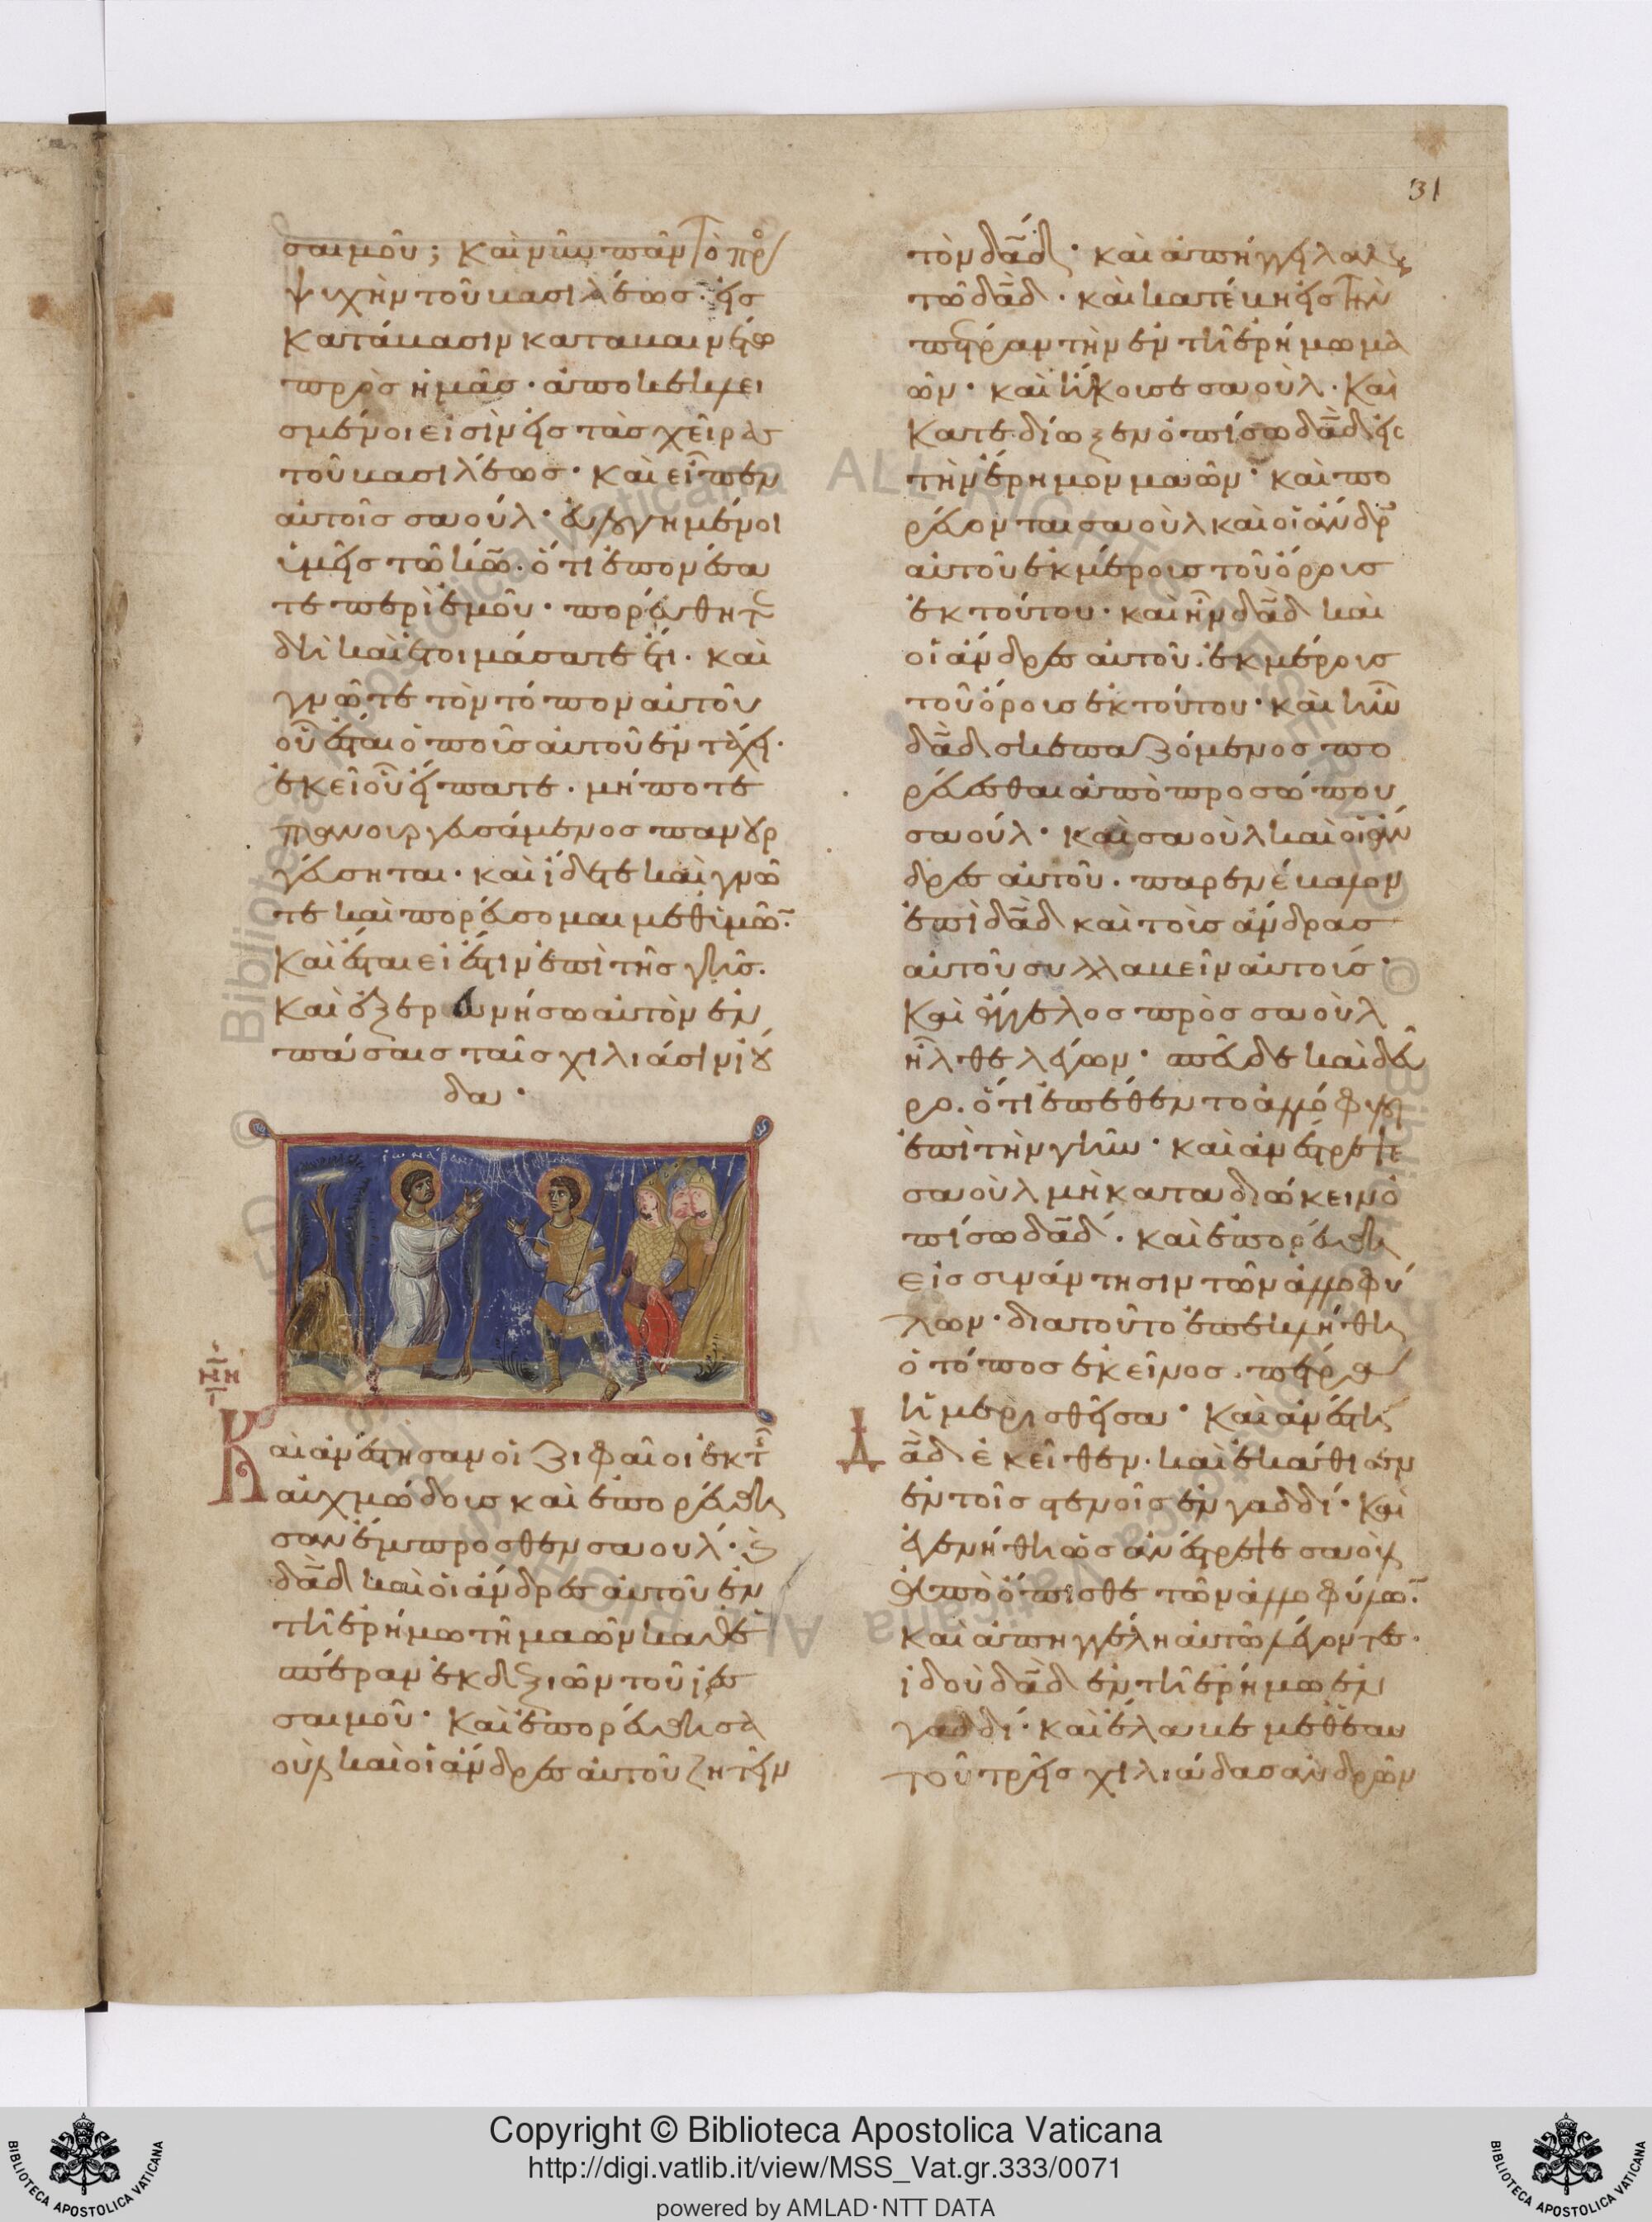 31
σαιμοῦ; Καὶ νῦν πᾶν τὸ πρὸς
ψυχὴν τοῦ βασιλέως· εἰς
Κατάβασιν καταβαινέτω
πρὸς ἡμᾶς· ἀποκεκλει
σμένοι εἰσὶν εἰς τὰς χεῖρας
τοῦ βασιλέως· Καὶ εἶπεν
αὐτοῖς σαούλ· εὐλογημένοι
ὑμεῖς τῶ κ̅ω̅· ὅτι ἐπονέσα
τε περὶ ἐμοῦ· πορεύθητε
δὴ καὶ ἑτοιμάσατε ἔτι· καὶ
γνῶτε τὸν τόπον αὐτοῦ
οὗ ἔσται ὁ ποῦς αὐτοῦ ἐν τάχει·
ἐκεῖ οὗ εἴπατε· μήποτε
πανουργευσάμενος πανουρ
γεύσηται· καὶ ἴδετε καὶ γνῶ
τε καὶ πορεύσομαι μεθ' ὑμῶν·
Καὶ ἔσται εἰ ἔστιν ἐπὶ τῆς γῆς·
Καὶ ἐξερευνήσω αὐτὸν ἐν
πάσαις ταῖς χιλιάσιν ἰού
δα·
Καὶ ἀνέστησαν οἱ ζιφαῖοι ἐκ τῆς
αὐχμώδους καὶ ἐπορεύθη
σαν ἔμπροσθεν σαουλ· καὶ
δα̅δ καὶ οἱ ἄνδρες αὐτοῦ ἐν
τῆ ἐρήμω τῆ μαὼν καθ' ἑ
σπέραν ἐκ δεξιῶν τοῦ ἰεσ
σαιμοῦ· Καὶ ἐπορεύθη σα
οὺλ καὶ οἱ ἄνδρες αὐτοῦ ζητεῖν
τὸν δα̅δ· καὶ ἀπήγγειλαν
τῶ δα̅δ· καὶ κατέβη εἰς τὴν
πέτραν τὴν ἐν τῆ ἐρήμω μα
ὼν· καὶ ἤκουσε σαοὺλ· Καὶ
Κατεδίωξεν ὀπίσω δα̅δ εἰς
τὴν ἔρημον μαὼν· καὶ πο
ρεύονται σαοὺλ καὶ οἱ ἄνδρες
αὐτοῦ ἐκ μέρους τοῦ ὄρους
ἐκ τούτου· καὶ ἦν δα̅δ καὶ
οἱ ἄνδρες αὐτοῦ· ἐκ μέρους
τοῦ ὄρους ἐκ τούτου· καὶ ἦν
δα̅δ σκεπαζόμενος πο
ρεύεσθαι ἀπὸ προσώπου
σαούλ· Καὶ σαοὺλ καὶ οἱ ἄν
δρες αὐτοῦ· παρενέβαλον
ἐπὶ δα̅δ καὶ τοὺς ἄνδρας
αὐτοῦ συλλαβεῖν αὐτούς·
Καὶ ἄγγελος πρὸς σαοὺλ
ἦλθε λέγων· σπεῦδε καὶ δεῦ
ρο· ὅτι ἐπέθεντο ἀλλόφυλοι
ἐπὶ τὴν γῆν· καὶ ἀνέστρεψε
σαοὺλ μὴ καταδιώκειν ὀ
πίσω δα̅δ· καὶ ἐπορεύθη
εἰς συνάντησιν τῶν ἀλλοφύ
λων· διατοῦτο ἐπεκλήθη
ὁ τόπος ἐκεῖνος· πέτρα
ἡ μερισθεῖσα· Καὶ ἀνέστη
Δα̅δ ἐκεῖθεν· καὶ ἐκάθισεν
ἐν τοῖς στενοῖς ἐν γαδδί· Καὶ
ἐγενήθη ὡς ἀνέστρεψε σαοὺλ
ἀπὸ ὄπισθε τῶν ἀλλοφύλων·
Καὶ ἀπηγγέλη αὐτῶ λέγοντες·
ἰδοὺ δα̅δ ἐν τῆ ἐρήμω ἐν
γαδδί· καὶ ἔλαβε μεθ' ἑαυ
τοῦ τρεῖς χιλιάδας ἀνδρῶν
© Biblioteca Apostolica Vaticana ALL RIGHTS RESERVED
Copyright © Biblioteca Apostolica Vaticana
http://digi.vatlib.it/view/MSS_Vat.gr.333/0071
powered by AMLAD·NTT DATA
BIBLIOTECA APOSTOLICA VATICANA
BIBLIOTECA APOSTOLICA VATICANA